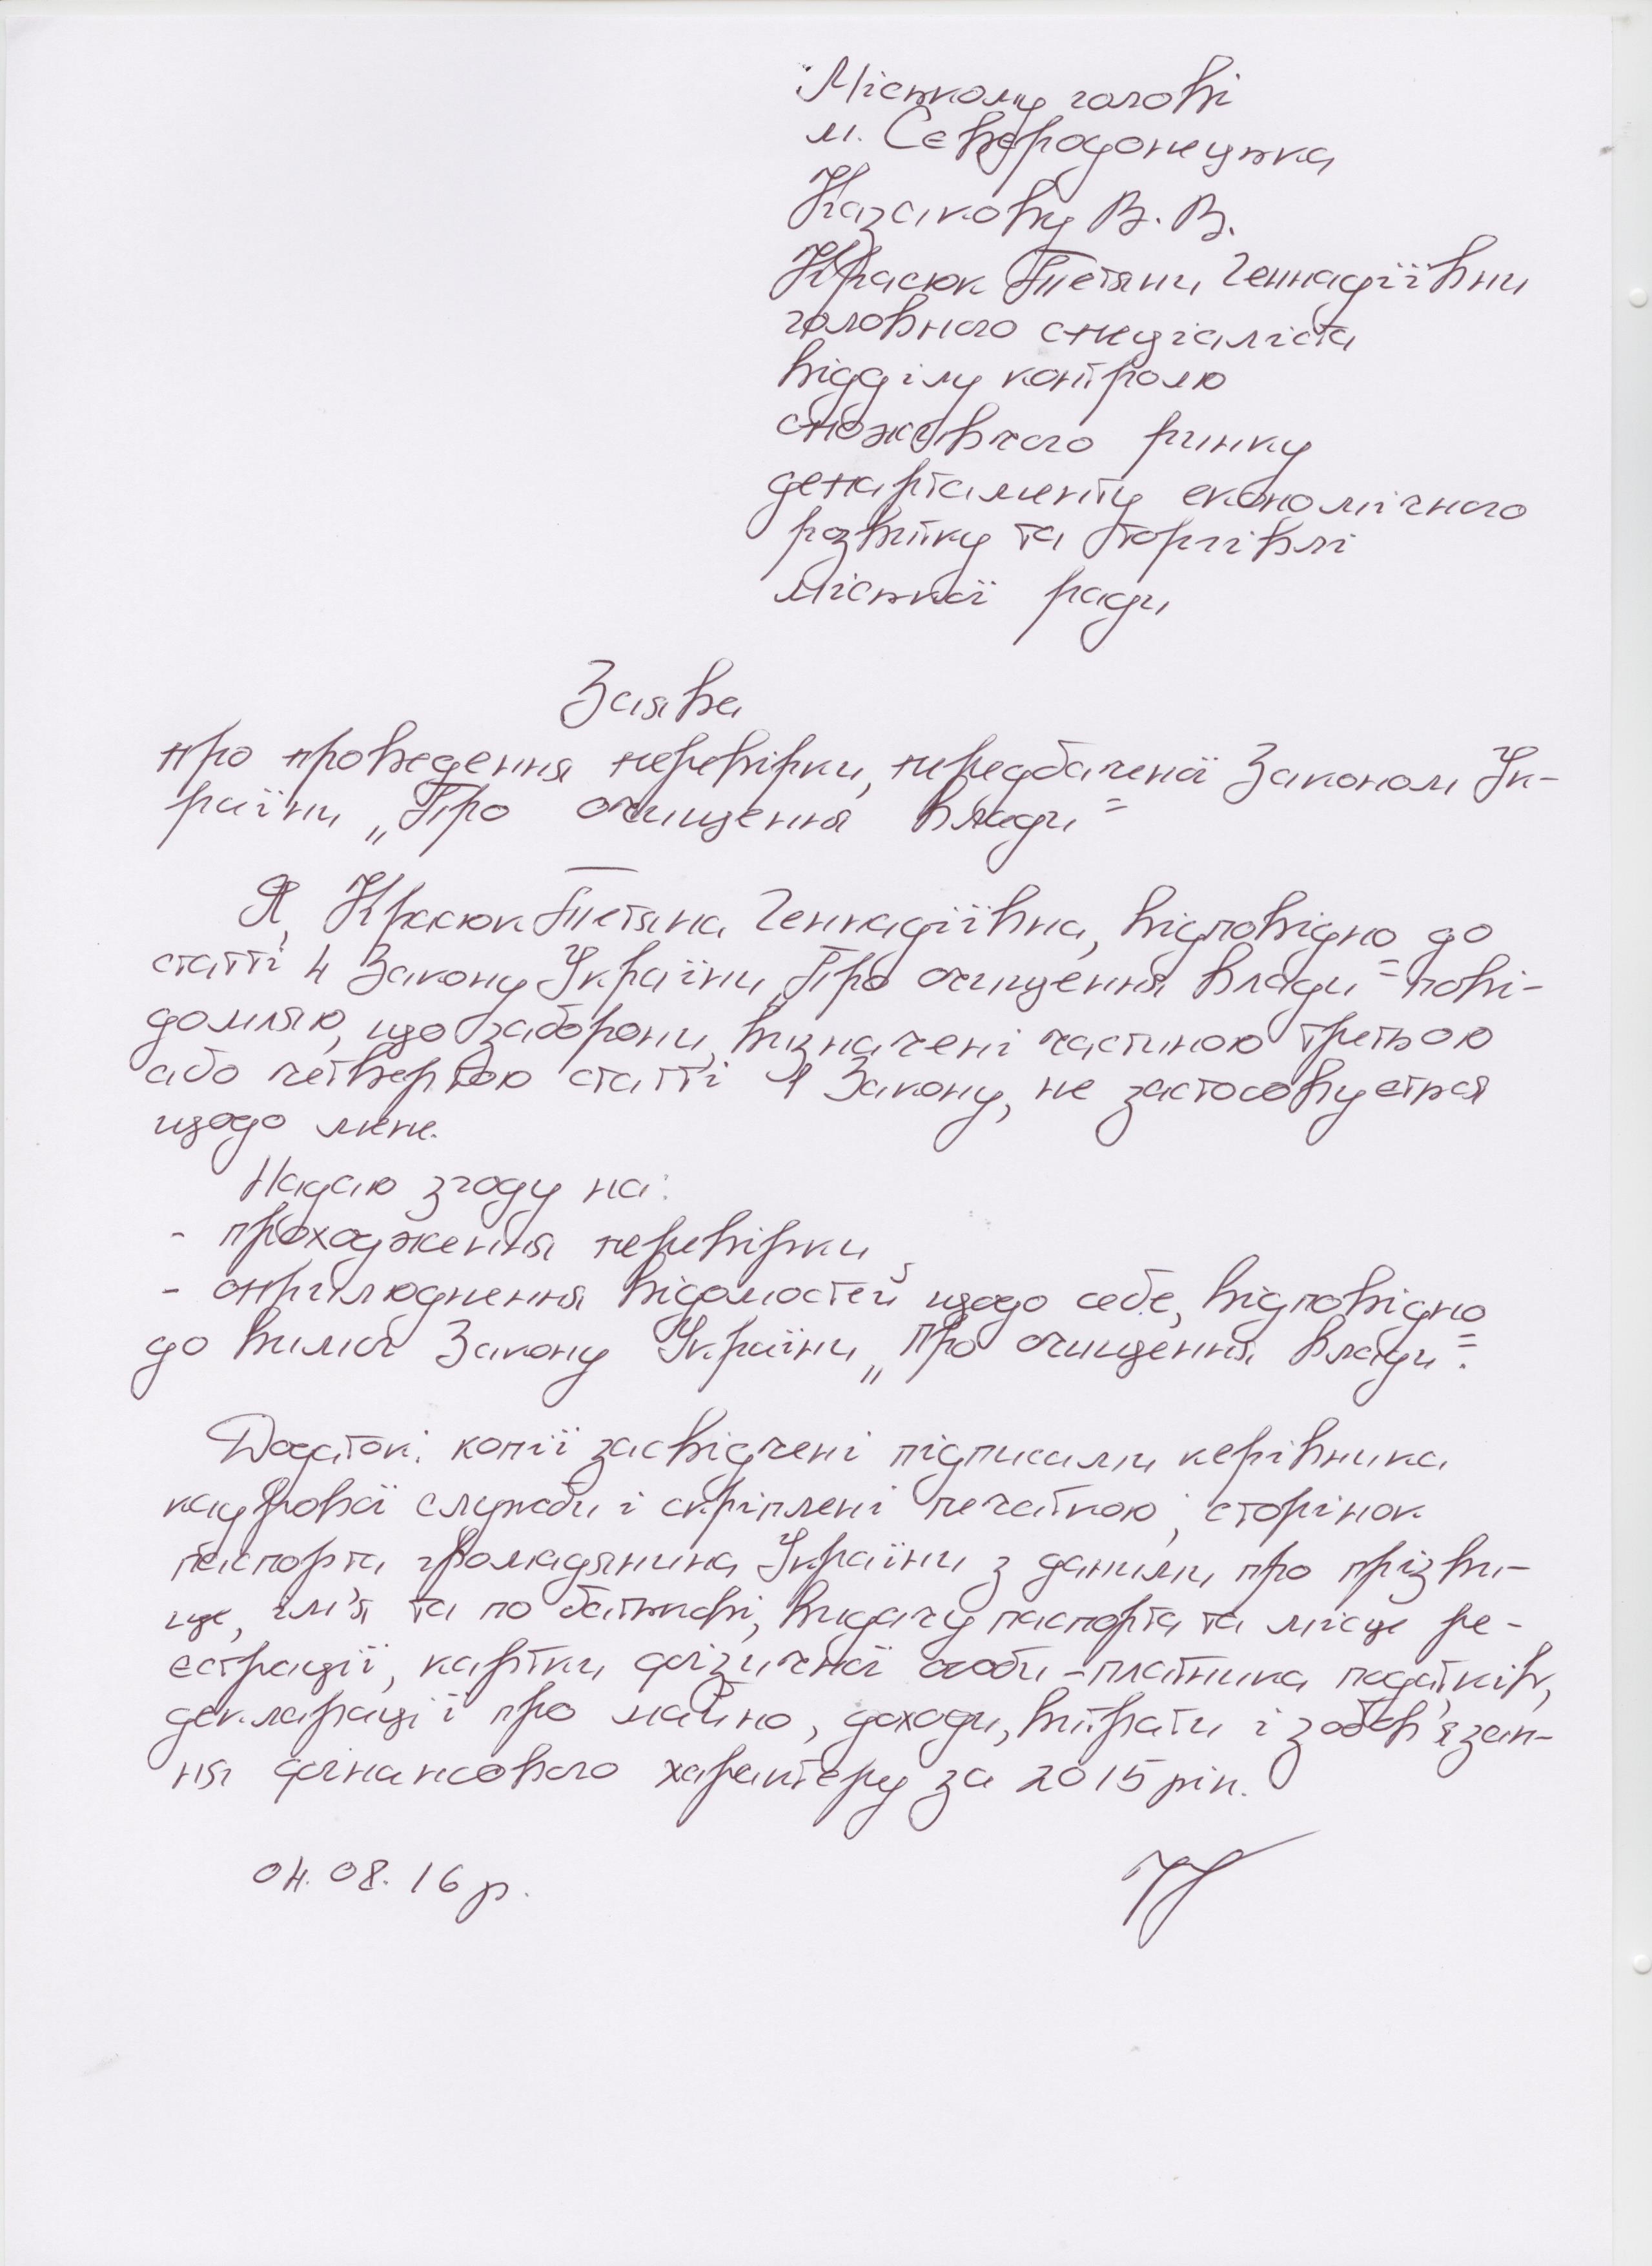 Міському голові
м. Сєвєродонецька
Казакову В. В.
Красюк Тетяни Геннадіївни
головного спеціаліста
відділу контролю
споживчого ринку
департаменту економічного
розвитку та торгівлі
міської ради
Заява
про проведення перевірки, передбаченої Законом Ук-
раїни „Про очищення влади"
Я, Красюк Тетяна Геннадіївна, відповідно до
статті 4 Закону України „Про очищення влади" пові-
домляю, що заборони, визначені частиною третьою
або четвертою статті 1 Закону, не застосовується
щодо мене.
Надаю згоду на:
- проходження перевірки,
- оприлюднення відомостей щодо себе, відповідно
до вимог Закону України „Про очищення влади".
Додаток: копії засвідчені підписами керівника
кадрової служби і скріплені печаткою; сторінок
паспорта громадянина України з даними про прізви-
ще, ім'я та по батькові, видачу паспорта та місце ре-
єстрації, картки фізичної особи-платника податків,
декларації про майно, доходи, витрати і зобов'язан-
ня фінансового характеру за 2015 рік.
04.08.16 р.